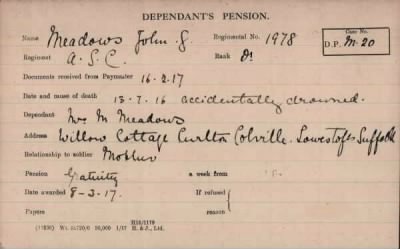 DEPENDANT'S PENSION.
Name Meadows John S. Regimental No. 1978
Case No.
D.P. M-20
Regiment A.S.C. Rank Dr
Documents received from Paymaster 16-2-17
Date and cause of death 13-7-16 accidentally drowned.
Dependant Mrs M Meadows
Address Willow Cottage Carlton Colville. Lowestoft Suffolk
Relationship to soldier Mother
Pension Gratuity a week from
Date awarded 8-3-17. If refused
Papers reason
H16/1179
50,000 1/17 H. & J., Ltd.